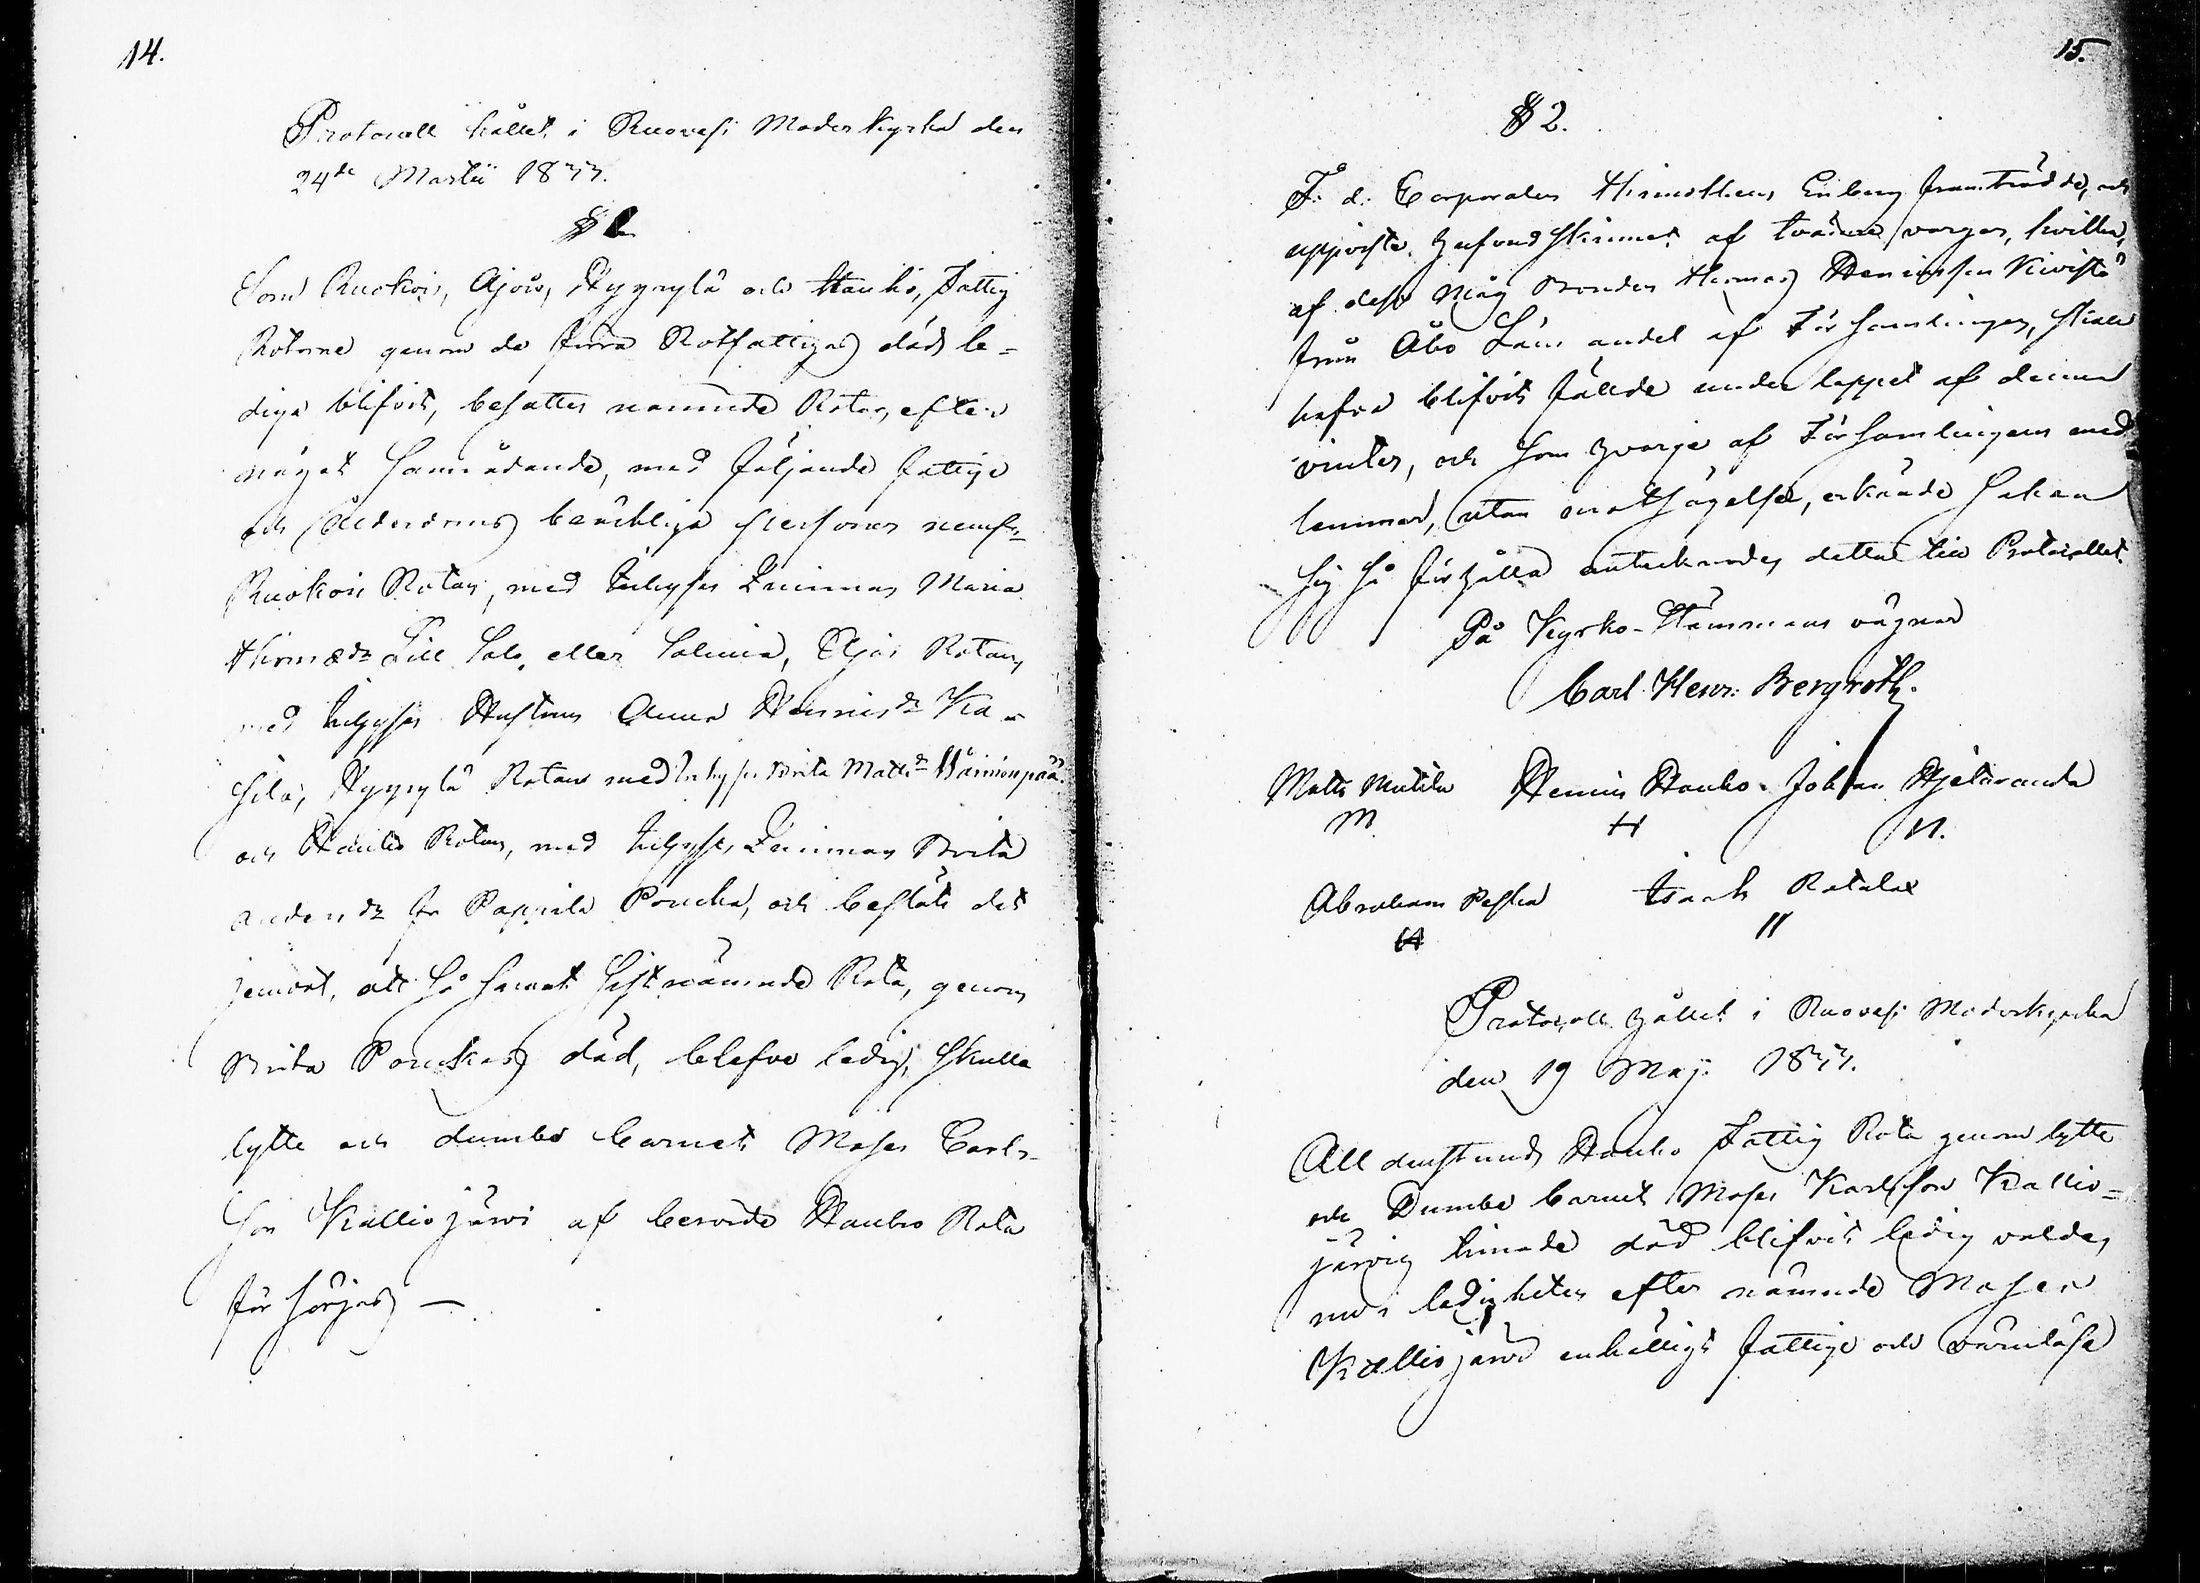 14.
Protocoll hållet i Ruovesi Moderkyrka den
24de Martii 1833.
§ 1
Som Ruokois, Ajois, Hyyrylä och Hauho, Fattig
Rotorne genom de förra Rotfattigas död le-
diga blifvit, besattes nämnde Rotar, efter
något samrådande, med följande fattige
och ålderdoms bräcklige personer nemln:
Ruokois Rotan, med Inhyses Qvinnan Maria
Thomædr Till Salo eller Salmia, Ajois Rotan,
med Inhyses Hustrun Anna Henricsdr Ka-
sila, Hyyrylä Rotan med Inhyses Brita Mattsdr Wäinionpää
och Hauho Rotan, med Inhyses Qvinnan Brita
Andersdr fr Pappila Poucka, och beslöts det
jemväl, att så snart sistnämnde Rota, genom
Brita Pouckas död, blefve ledig, skulle
lytte och dumbe barnet Moses Carls-
son Kalliojärvi af berörde Hauho Rota
försörjas —
15.
§ 2.
F. d. Corporalen Thimotheus Enberg framträdde, och
uppviste hufvudskinnet af tvänne vargar, hvilka,
af dess Måg Bonden Thomas Henricsson Kivistö
från Åbo Läns andel af Församlingen, skola
hafva blifvit fällde under loppet af denna
vinter, och som hvarje af Församlingens med-
lemmar, utan motsägelse, erkände saken
sig så förhålla antecknades detta till Protocollet.
På Kyrko-Stämmans vägnar
Carl Henr: Bergroth.
Matts Mutila Henric Hauho. Johan Hjetaranda
M. H H.
Abraham Peska Isach Ratala
Protocoll hållet i Ruovesi Moderkyrka
den 19 Maji 1833.
Alldenstund Hauho Fattig Rota genom lytte
och Dumbe barnet Moses Karlsson Kallio-
järvis timade död blifvit ledig valdes
nu i ledigheten efter nämnde Moses
Kalliojärvi enhälligt fattige och värnlösa